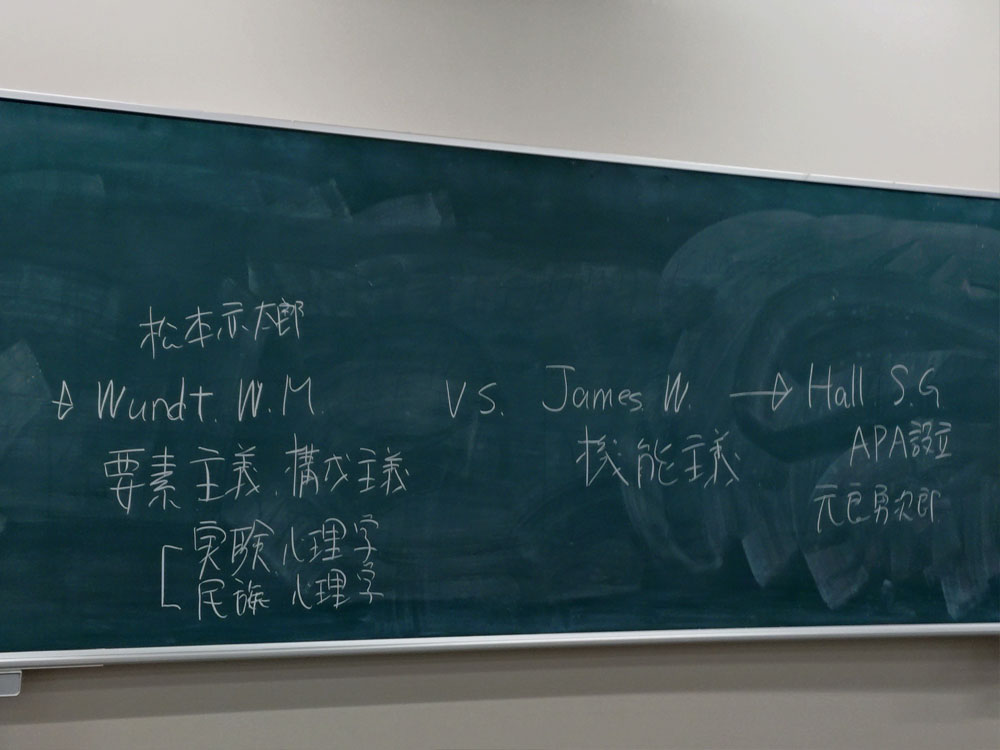 松本亦太郎
→ Wundt. W. M. vs. James. W. → Hall S.G
要素主義、構成主義
機能主義
APA設立
元良勇次郎
実験心理学
民族心理学